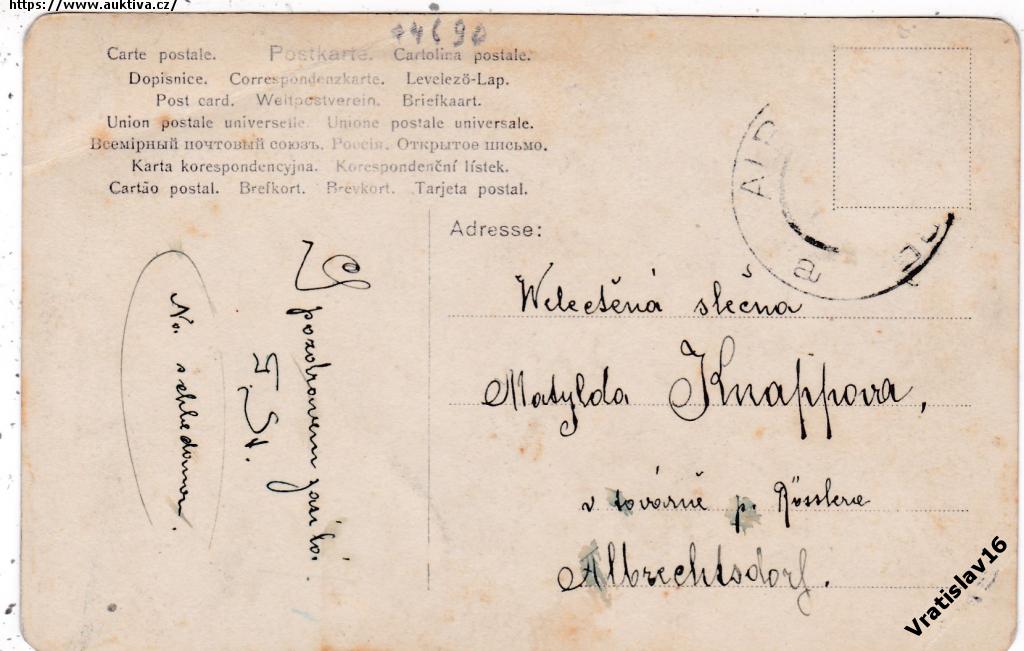 https://www.auktiva.cz/
44690
Carte postale. Postkarte. Cartolina postale.
Dopisnice. Correspondenzkarte. Levelező-Lap.
Post card. Weltpostverein. Briefkaart.
Union postale universelle. Unione postale universale.
Всемірный почтовый союзъ. Россія. Открытое письмо.
Karta korespondencyjna. Korespondenční lístek.
Cartão postal. Brefkort. Brevkort. Tarjeta postal.
Adresse:
Welectěná slečna
Matylda Knappova,
v továrně p. Rösslera
Albrechtsdorf.
S
pozdravem zasílá
Na shledanou.
ALB
a
Vratislav16